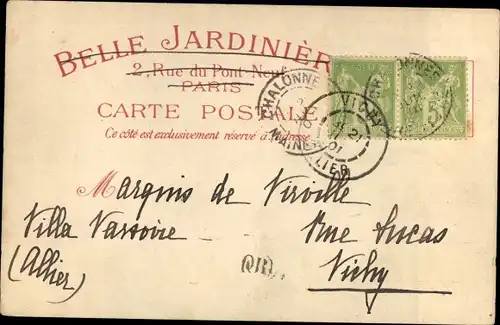 BELLE JARDINIÈR
2, Rue du Pont-Neuf
PARIS
CARTE POSTALE
Ce côté est exclusivement réservé à l'adresse
CHALONNE
MAINE
VICHY
21
01
ALLIER
5
Marquis de Viroille
Villa Vassoire Rue Lucas
(Allier) Vichy